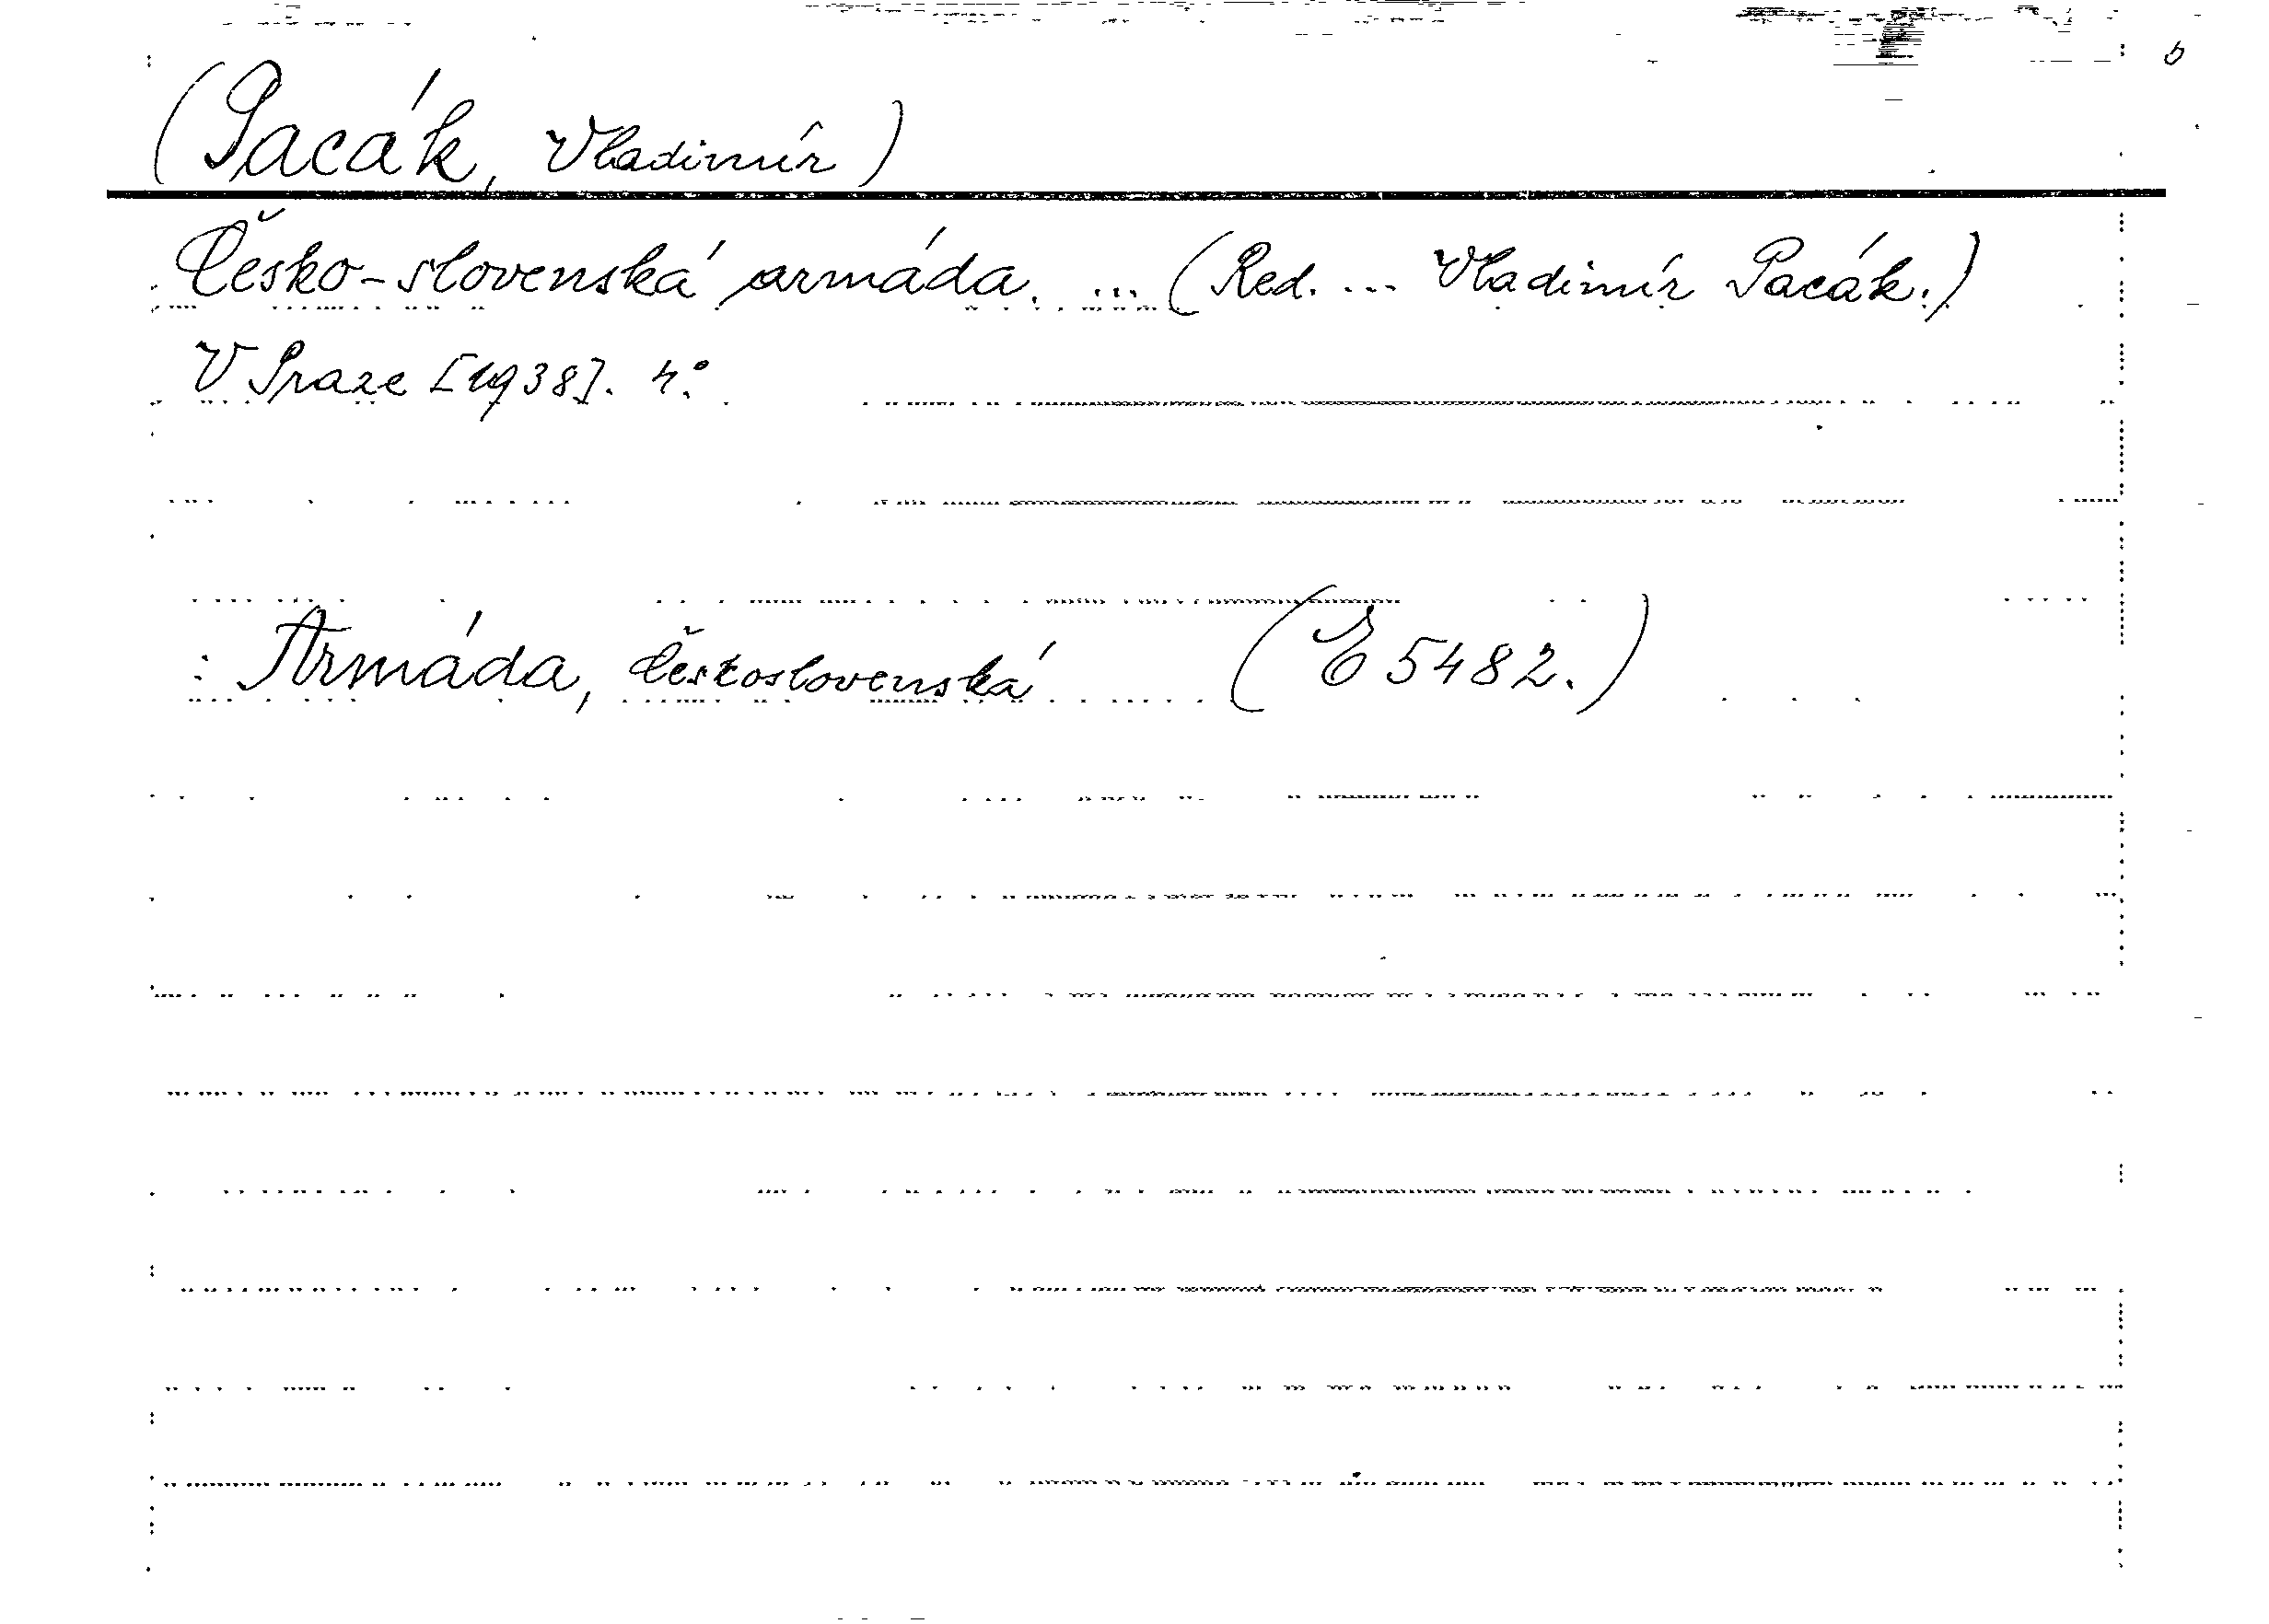 (Pacák, Vladimír)
Česko-slovenská armáda. ... (Red. ... Vladimír Pacák.)
V Praze [1938]. 4°.
: Armáda, československá (E 5482.)